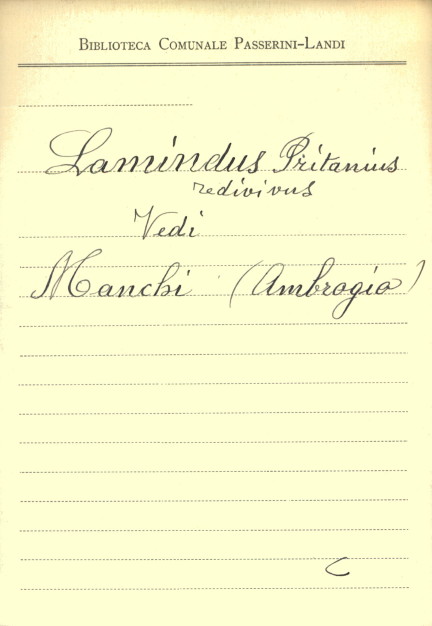 BIBLIOTECA COMUNALE PASSERINI-LANDI
Lamindus Pritanius
redivivus
Vedi
Manchi (Ambrogio)
C